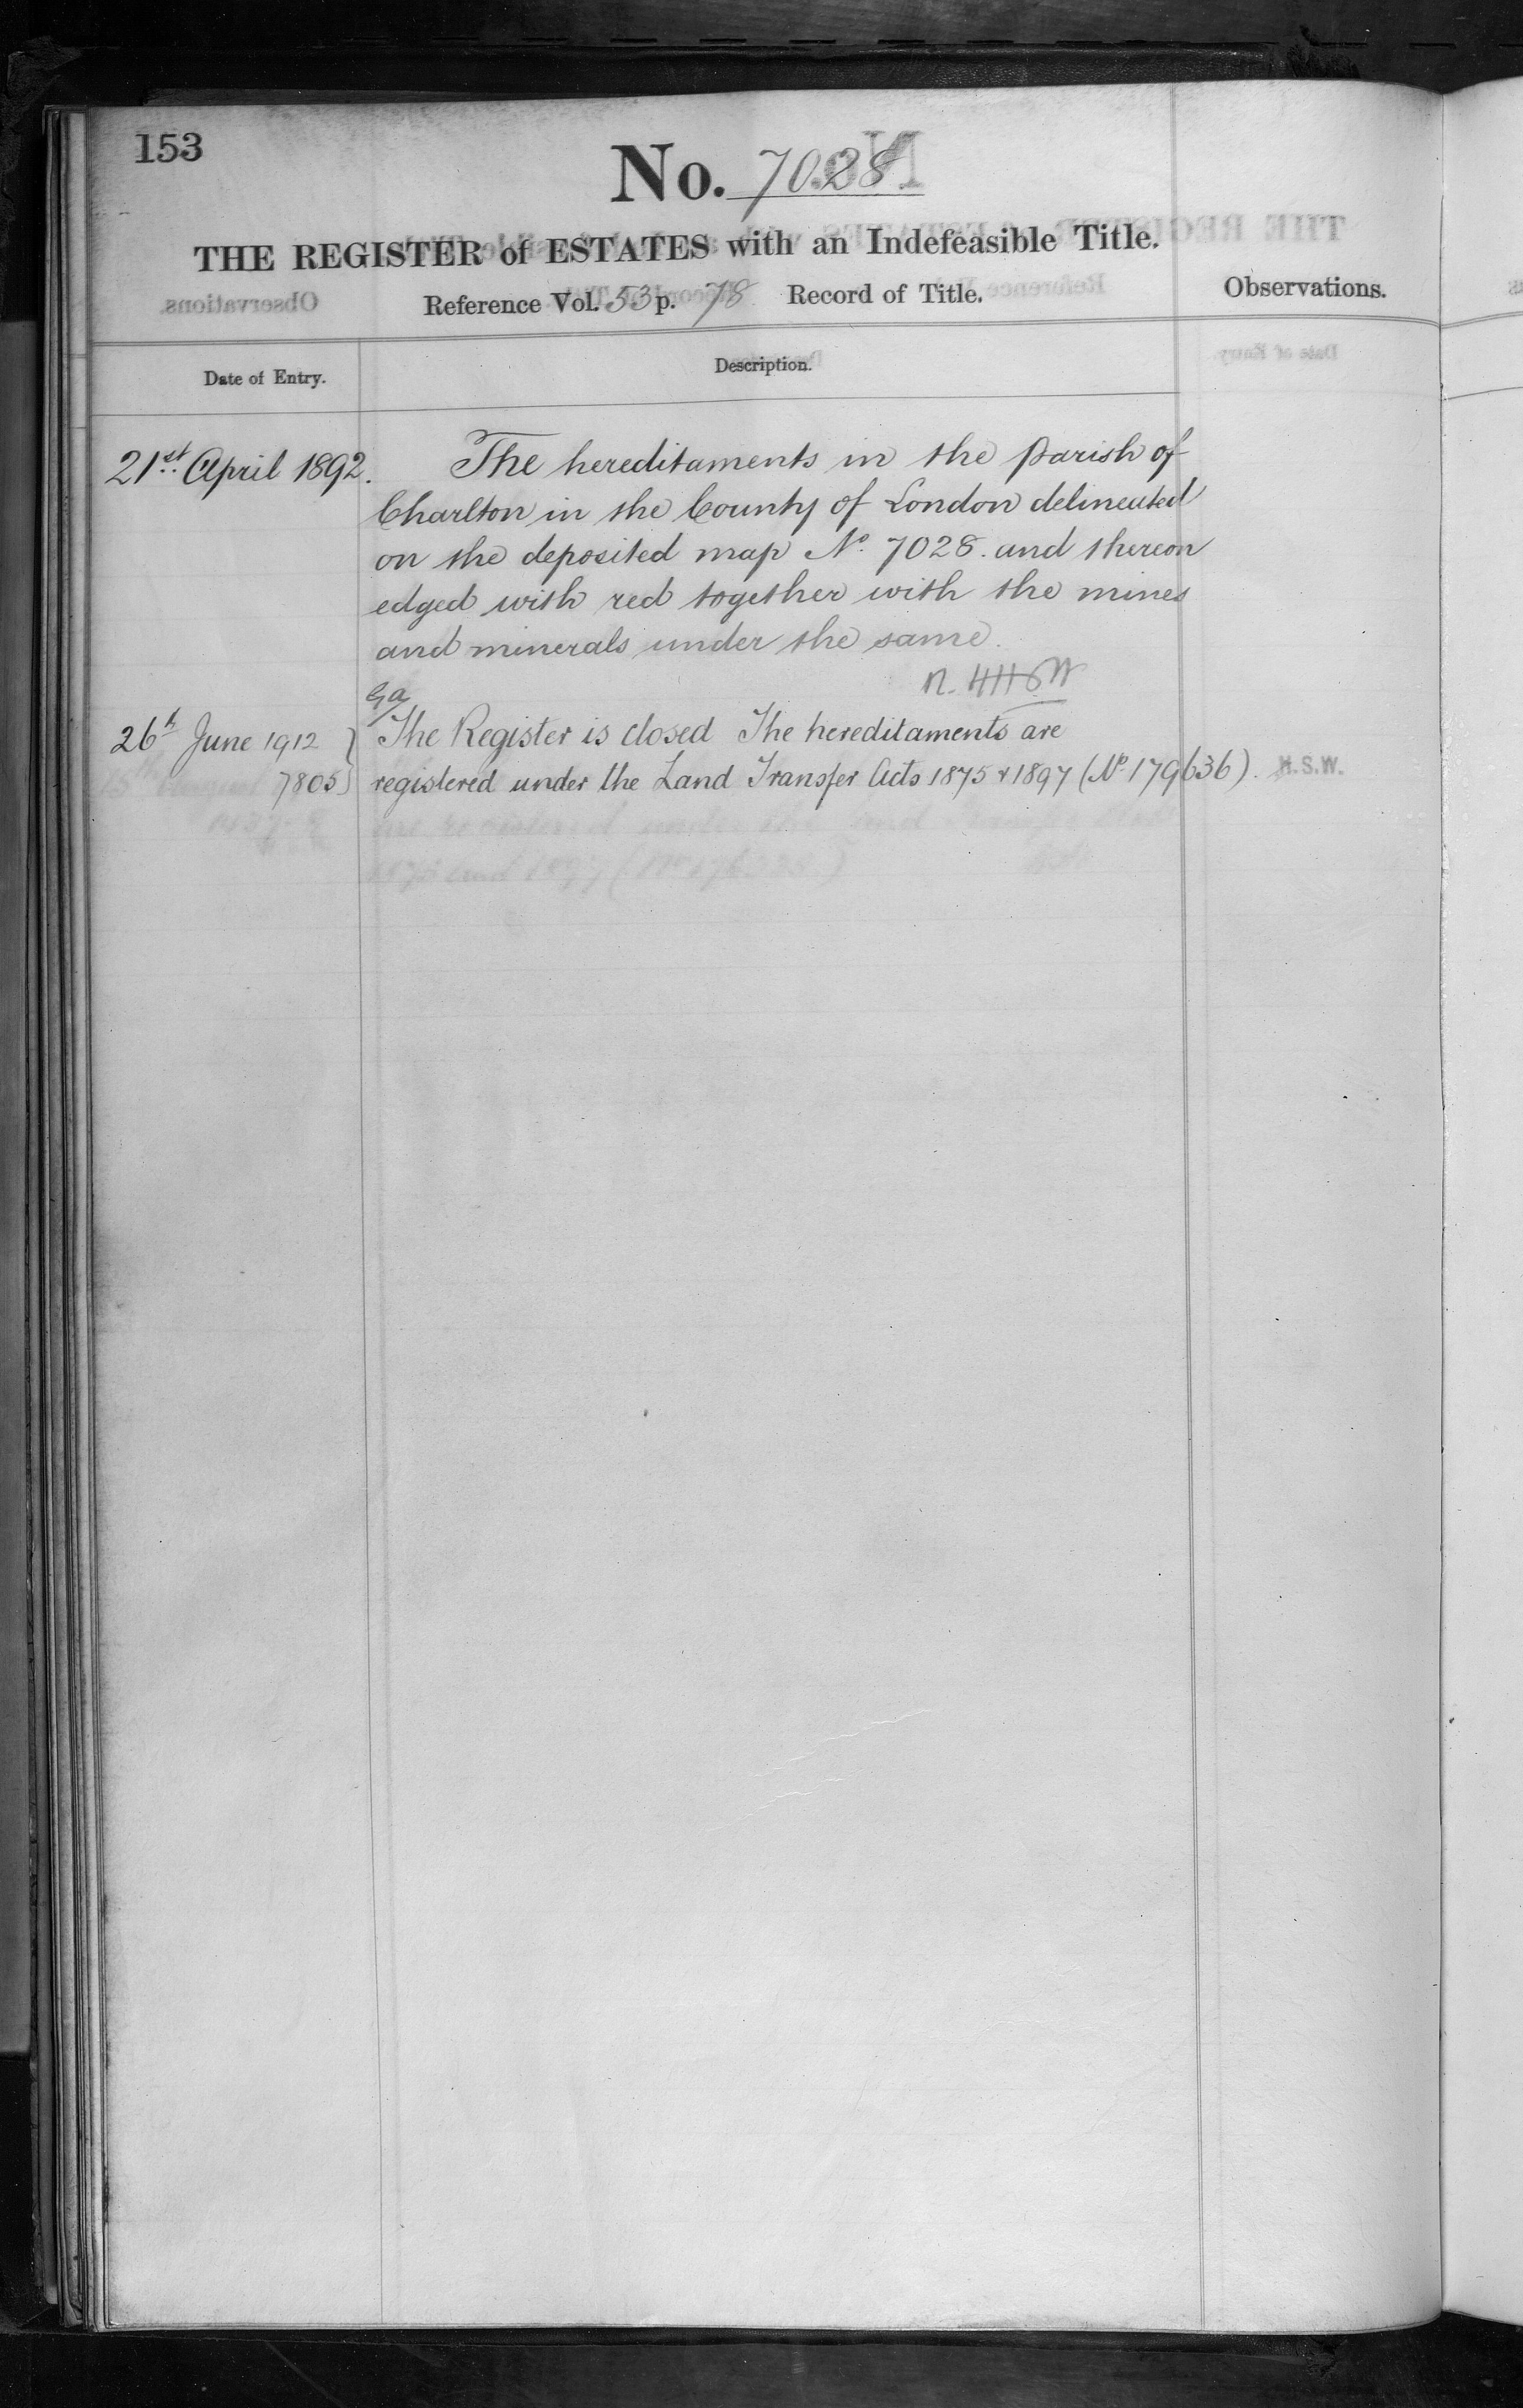 153
No. 7028
THE REGISTER of ESTATES with an Indefeasible Title.
Reference Vol. 53 p. 78 Record of Title.
Observations.
Date of Entry.
Description.
21st. April 1892.
The hereditaments in the parish of
Charlton in the County of London delineated
on the deposited map No. 7028. and thereon
edged with red together with the mines
and minerals under the same.
26th June 1912
7805
The Register is closed The hereditaments are
registered under the Land Transfer Acts 1875 & 1897 (No. 179636). H.S.W.